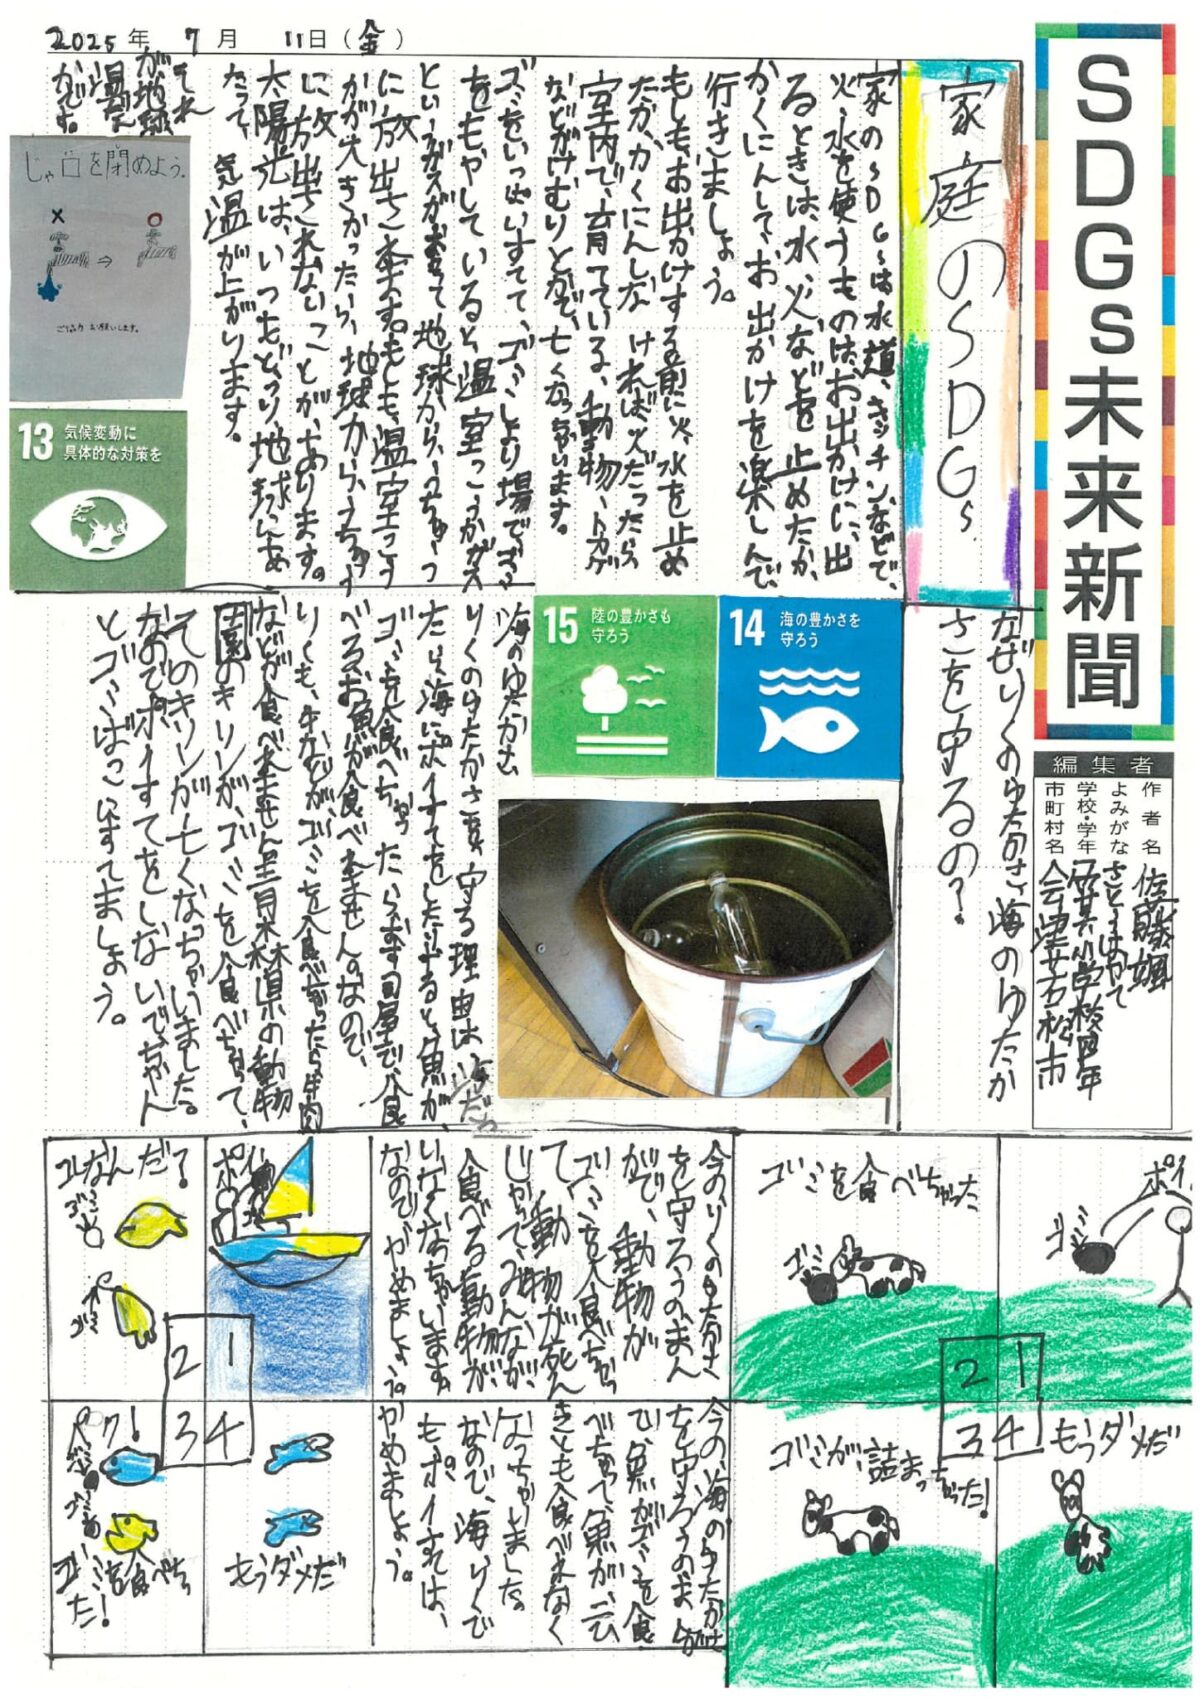 2025年 7月 11日(金)
SDGs未来新聞
編集者
作者名 佐藤颯
よみがな さとうはやて
学校・学年 小学校四年
市町村名 会津若松市
家庭のSDGs
家のSDGsは水道、キッチンなどで、
火、水を使うものは、お出かけに、出
るときは、水、火などを止めたか、
かくにんして、お出かけを楽しんで、
行きましょう。
もしも、お出かけする前に火、水を止め
たか、かくにんしなければ火だったら
室内で育てている、動物、トカゲ
などがけむりとかで、亡くなっちゃいます。
ゴミをいっぱいすてて、ゴミしより場でゴミ
をもやしていると温室こうかガス
というガスがあって地球から、うちゅう
に放出されます。もしも、温室こう
かが大きかったら、地球から、うちゅう
に放出されないことが、あります。
太陽光は、いつもどおり、地球にあ
たって、気温が上がります。
それ
が地球
温だん
かです。
じゃ口を閉めよう。
ご協力お願いします。
13 気候変動に
具体的な対策を
なぜりくのゆたかさ、海のゆたか
さを守るの?
14 海の豊かさを
守ろう
15 陸の豊かさも
守ろう
海のゆたかさ
りくのゆたかさを守る理由は海だっ
たら、海にポイすてをしたりすると、魚が、
ゴミを食べちゃったらおすし屋で、食
べるお魚が食べません。なので、
りくも、牛などが、ゴミを食べちゃったら牛肉
などが食べません。青森県の動物
園のキリンが、ゴミを食べちゃって、
そのキリンが亡くなっちゃいました。
なのでポイすてをしないで、ちゃん
とゴミばこにすてましょう。
ポイ
ゴミ
ゴミを食べちゃった
ゴミ
ゴミが、詰まっちゃった!
もうダメだ
1
2
3
4
今の、りくのゆたかさ
を守ろうの、まん
がで、動物が
ゴミを食べちゃっ
て、動物が死ん
じゃって、みんなが、
食べる動物が、
いなくなちゃいます。
なのでやめましょう。
今の、海のゆたかさ
を守ろうのまんが
で、魚がゴミを食
べちゃって、魚が、二ひ
きとも食べれなく
なっちゃいました。
なので、海、りくで
も、ポイすては、
やめましょう。
ポイ
コレなんだ?
ゴミ
ゴミ
パク!
ゴミ
ゴミを食べちゃっ
た!
もうダメだ
1
2
3
4